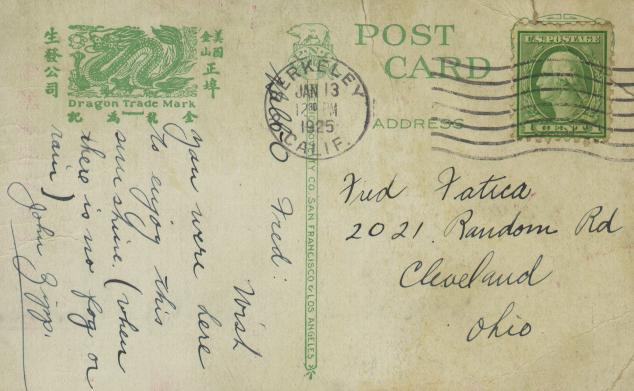 生發公司
美國
金山
正埠
Dragon Trade Mark
金龍為記
POST
CARD
ADDRESS
U.S. POSTAGE
BERKELEY
JAN 13
12 30 PM
1925
CALIF.
CO. SAN FRANCISCO & LOS ANGELES
Hello Fred:
Wish
you were here
to enjoy this
sunshine. (when
there is no fog or
rain)
John Zipp.
Fred Fatica
2021 Random Rd
Cleveland
Ohio